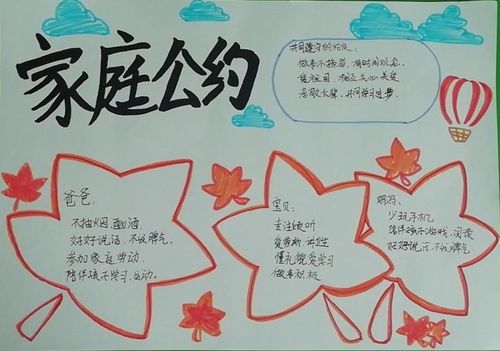 家庭公约
共同遵守的约定:
做事不拖沓,有时间观念.
爱祖国 相互关心关爱
孝敬长辈,共同学习进步.
爸爸:
不抽烟,酗酒
好好说话,不发脾气.
参加家庭劳动.
陪伴孩子学习.运动.
宝贝:
专注倾听
爱劳动.讲卫生
懂礼貌爱学习
做事积极
妈妈:
少玩手机
陪伴孩子游戏.阅读
好好说话不发脾气